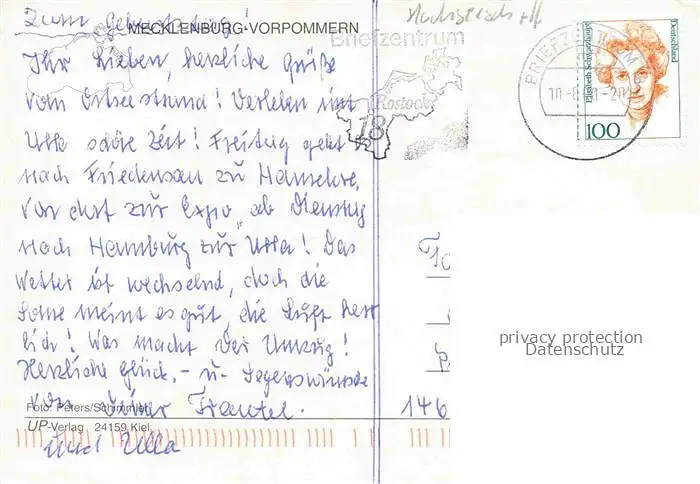 Zum Geburtstag!
MECKLENBURG-VORPOMMERN
Ihr Lieben, herzliche Grüße
vom Ostseestrand! Verleben mit
Ulla schöne Zeit! Freitag geht
nach Friedensau zu
Von dort zur Expo, ab Dienstag
nach Hamburg zur Ulla! Das
Wetter ist wechselnd, doch die
Sonne meint es gut, die Luft herr
lich! Was macht der Umzug!
Herzliche Glück.- u- Segenswünsche
von
und Ulla
Foto: Peters/Schimmler
UP-Verlag 24159 Kiel
Briefzentrum
Rostock
18
BRIEFZENTRUM
Deutschland
Elisabeth Schwarzhaupt
100
146
privacy protection
Datenschutz